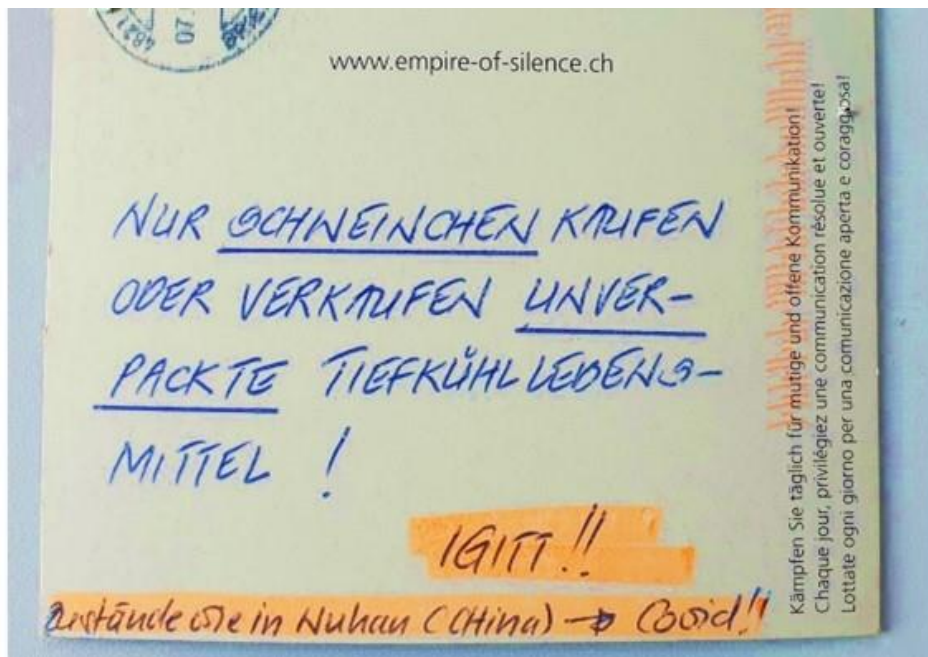 4821
07.
www.empire-of-silence.ch
NUR SCHWEINCHEN KAUFEN
ODER VERKAUFEN UNVER-
PACKTE TIEFKÜHLLEBENS-
MITTEL !
IGITT!!
Zustände wie in Wuhan (CHina) → Covid!!
Kämpfen Sie täglich für mutige und offene Kommunikation!
Chaque jour, privilégiez une communication résolue et ouverte!
Lottate ogni giorno per una comunicazione aperta e coraggiosa!